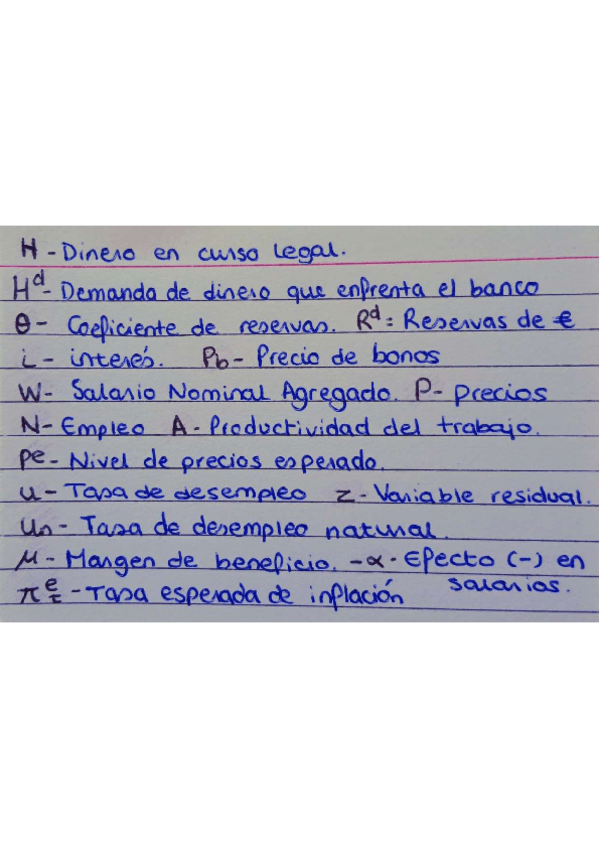 H - Dinero en curso legal.
Hᵈ - Demanda de dinero que enfrenta el banco
θ - Coeficiente de reservas. Rᵈ = Reservas de €
i - interés. Pb - Precio de bonos
W - Salario Nominal Agregado. P - precios
N - Empleo A - Productividad del trabajo.
Pe - Nivel de precios esperado.
u - Tasa de desempleo z - Variable residual.
Un - Tasa de desempleo natural.
μ - Margen de beneficio. -α - Efecto (-) en salarios.
πᵉt - Tasa esperada de inflación